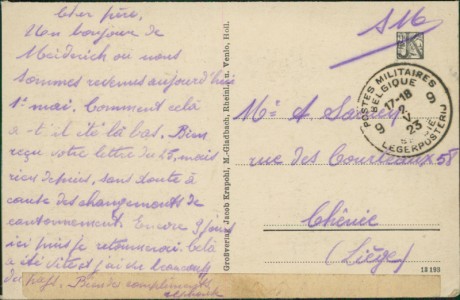 Cher père,
Mon bonjour de
Meiderich où nous
sommes revenus aujourd'hui
1er mai. Comment cela
a-t-il été là bas. Bien
reçu votre lettre du 25, mais
rien depuis, sans doute à
cause des changements de
cantonnement. Encore 9 jours
ici puis je retournerai. Cela
a été vite et j'ai eu
du Bien des compliments
Großverlag Jacob Krapohl, M.-Gladbach, Rheinl. u. Venlo, Holl.
S M
POSTES MILITAIRES
BELGIQUE
9 9
17-18
2
V
23
LEGERPOSTERIJ
Mr A
rue des 58
Chênée
(Liège)
13 193